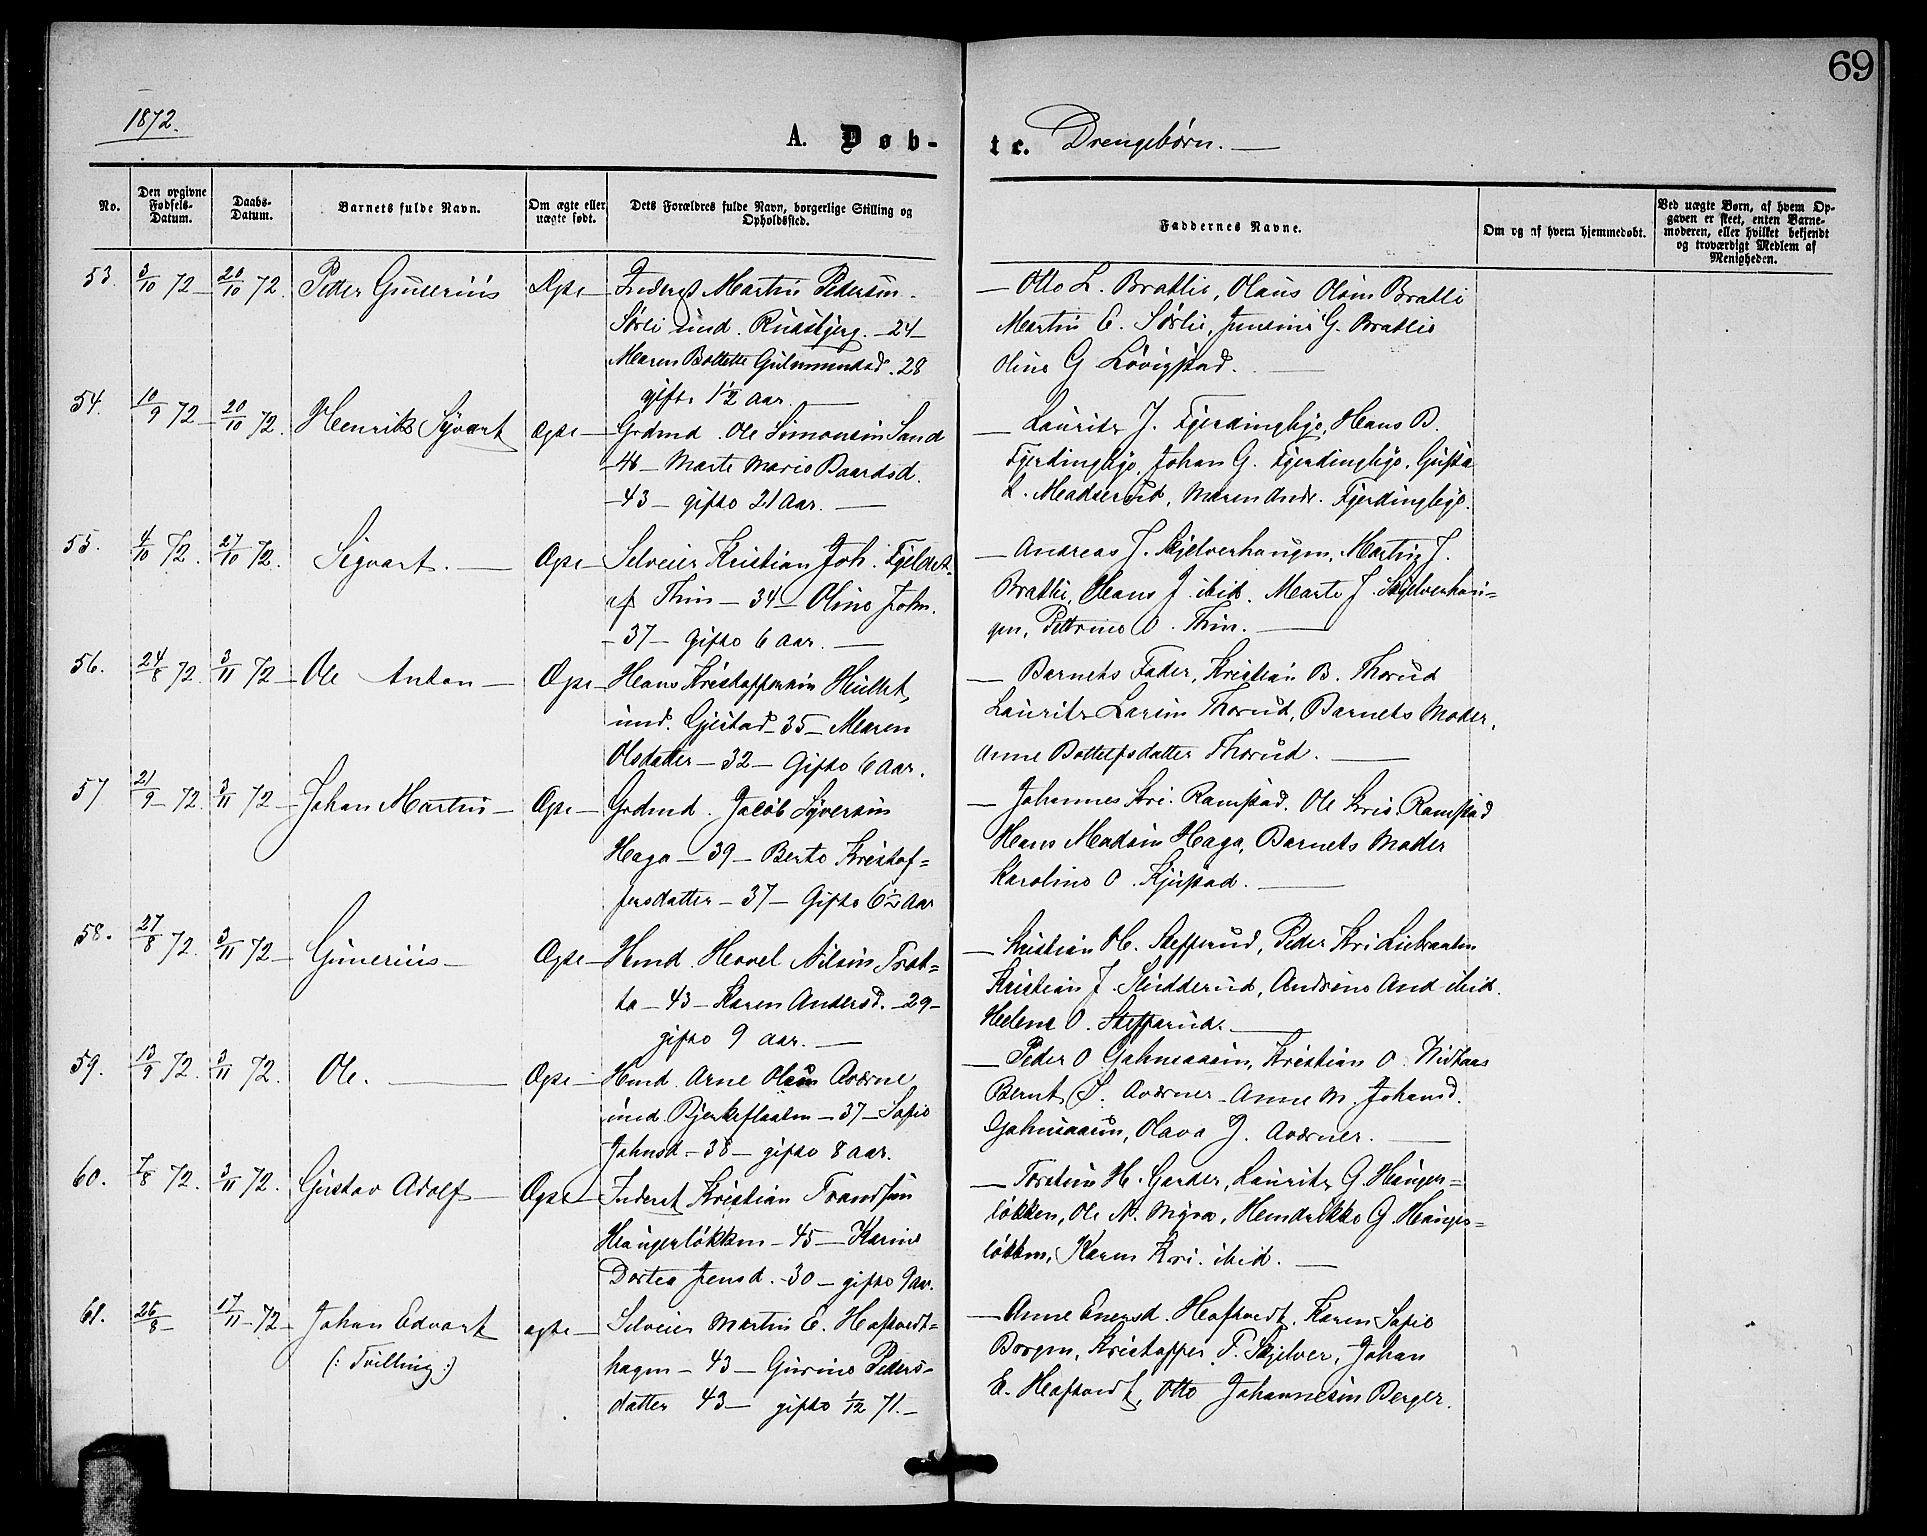 69
1872.
A. Døb-
te. Drengebørn.
No.
Den opgivne Fødsels-Datum.
Daabs-Datum.
Barnets fulde Navn.
Om ægte eller uægte født.
Dets Forældres fulde Navn, borgerlige Stilling og Opholdssted.
Faddernes Navne.
Om og af hvem hjemmedøbt.
Ved uægte Børn, af hvem Op-
gaven er skeet, enten Barne-
moderen, eller hvilket bekjendt
og troværdigt Medlem af
Menigheden.
53. 3/10 72 20/10 72. Peder Gunerius Ægte Inderst Martin Pedersen
Sørli und. Rudsbjerg. 24
Maren Bolette Gulmundsd. 28
gifte 1½ aar.
Otto L. Bratlie, Olaus Olsen Bratli
Martin E. Sørlie, G. Bratlie
Oline G Løvigstad.
54. 10/9 72 20/10 72. Henrik Syvart ægte Grdmd. Ole Simonsen Sand
46 Marte Marie Baardsd.
43 gifte 21 Aar.
Laurits J. Fjerdingbye, Hans B.
Fjerdingbye, Johan G. Fjerdingbye. Gusta
L. Madserud, Maren Andr. Fjerdingbye.
55. 4/10 72. 27/10 72. Sigvart. Ægte Selveier Kristian Joh. Fjeldet
af Thin 34 Oline Johs.
37 gifte 6 aar.
Andreas J. Skjelverhaugen, Martin J.
Bratli, Hans J. ibid. Marte J. Skjelverhau=
gen, Petrine O. Thin.
56. 24/8 72. 3/11 72 Ole Anton Ægte Hans Kristoffersen Hullet,
und. Gjestad 35 Maren
Olsdatter 32 Gifte 6 Aar.
Barnets Fader, Kristian B. Thorud
Laurits Larsen Thorud, Barnets Moder,
Anne Bottolfsdatter Thorud.
57 21/9 72. 3/11 72 Johan Martin Ægte Grdmd. Jacob Syversen
Haga 39 Berte Kristof=
fersdatter 37 Gifte 6½ Aar
Johannes Kri. Ramstad. Ole Kris. Ramstad
Hans Madsen Haga, Barnets Moder
Karoline O. Kjustad.
58. 27/8 72. 3/11 72 Gunerius Ægte Hmd. Hovel Nilsen Trøt=
ta 43 Karen Andersd. 29
gifte 9 aar.
Kristian H. Stefferud, Peder Kri
Kristian J. Skidderud, Andrine And ibid.
Helene O. Stefferud.
59. 13/9 72. 3/11 72. Ole. Ægte Hmd. Arne Olsen Aværne
und Bjerkeflaaten 37 Sofie
Johnsd. 38 gifte 8 aar.
Peder O Gahmaasen, Kristian O.
Bernt S. Aværner Anne M. Johansd.
Gahmaasen, Olava J. Aværner.
60. 7/8 72. 3/11 72. Gustav Adolf Ægte Inderst Kristian Trondsen
Haugerløkken 45 Karine
Dortea Jensd. 30 gifte 9 aar.
Torsten H. Garder, Laurits G. Hauger=
løkken, Ole N. Myra, Hendrikke G. Hauger=
løkken, Karen Kri. ibid.
61. 26/8 17/11 72 Johan Edvart ægte Selveier Martin E. Hoftvedt=
(: Tvilling :)
hagen 43 Gurine Peders=
datter 43 gifte 1/12 71.
Anne Enersd. Hoftvedt, Karen Sofie
Borgen, Kristoffer P. Skjelver, Johan
E. Hoftvedt, Otto Johannesen Berger.